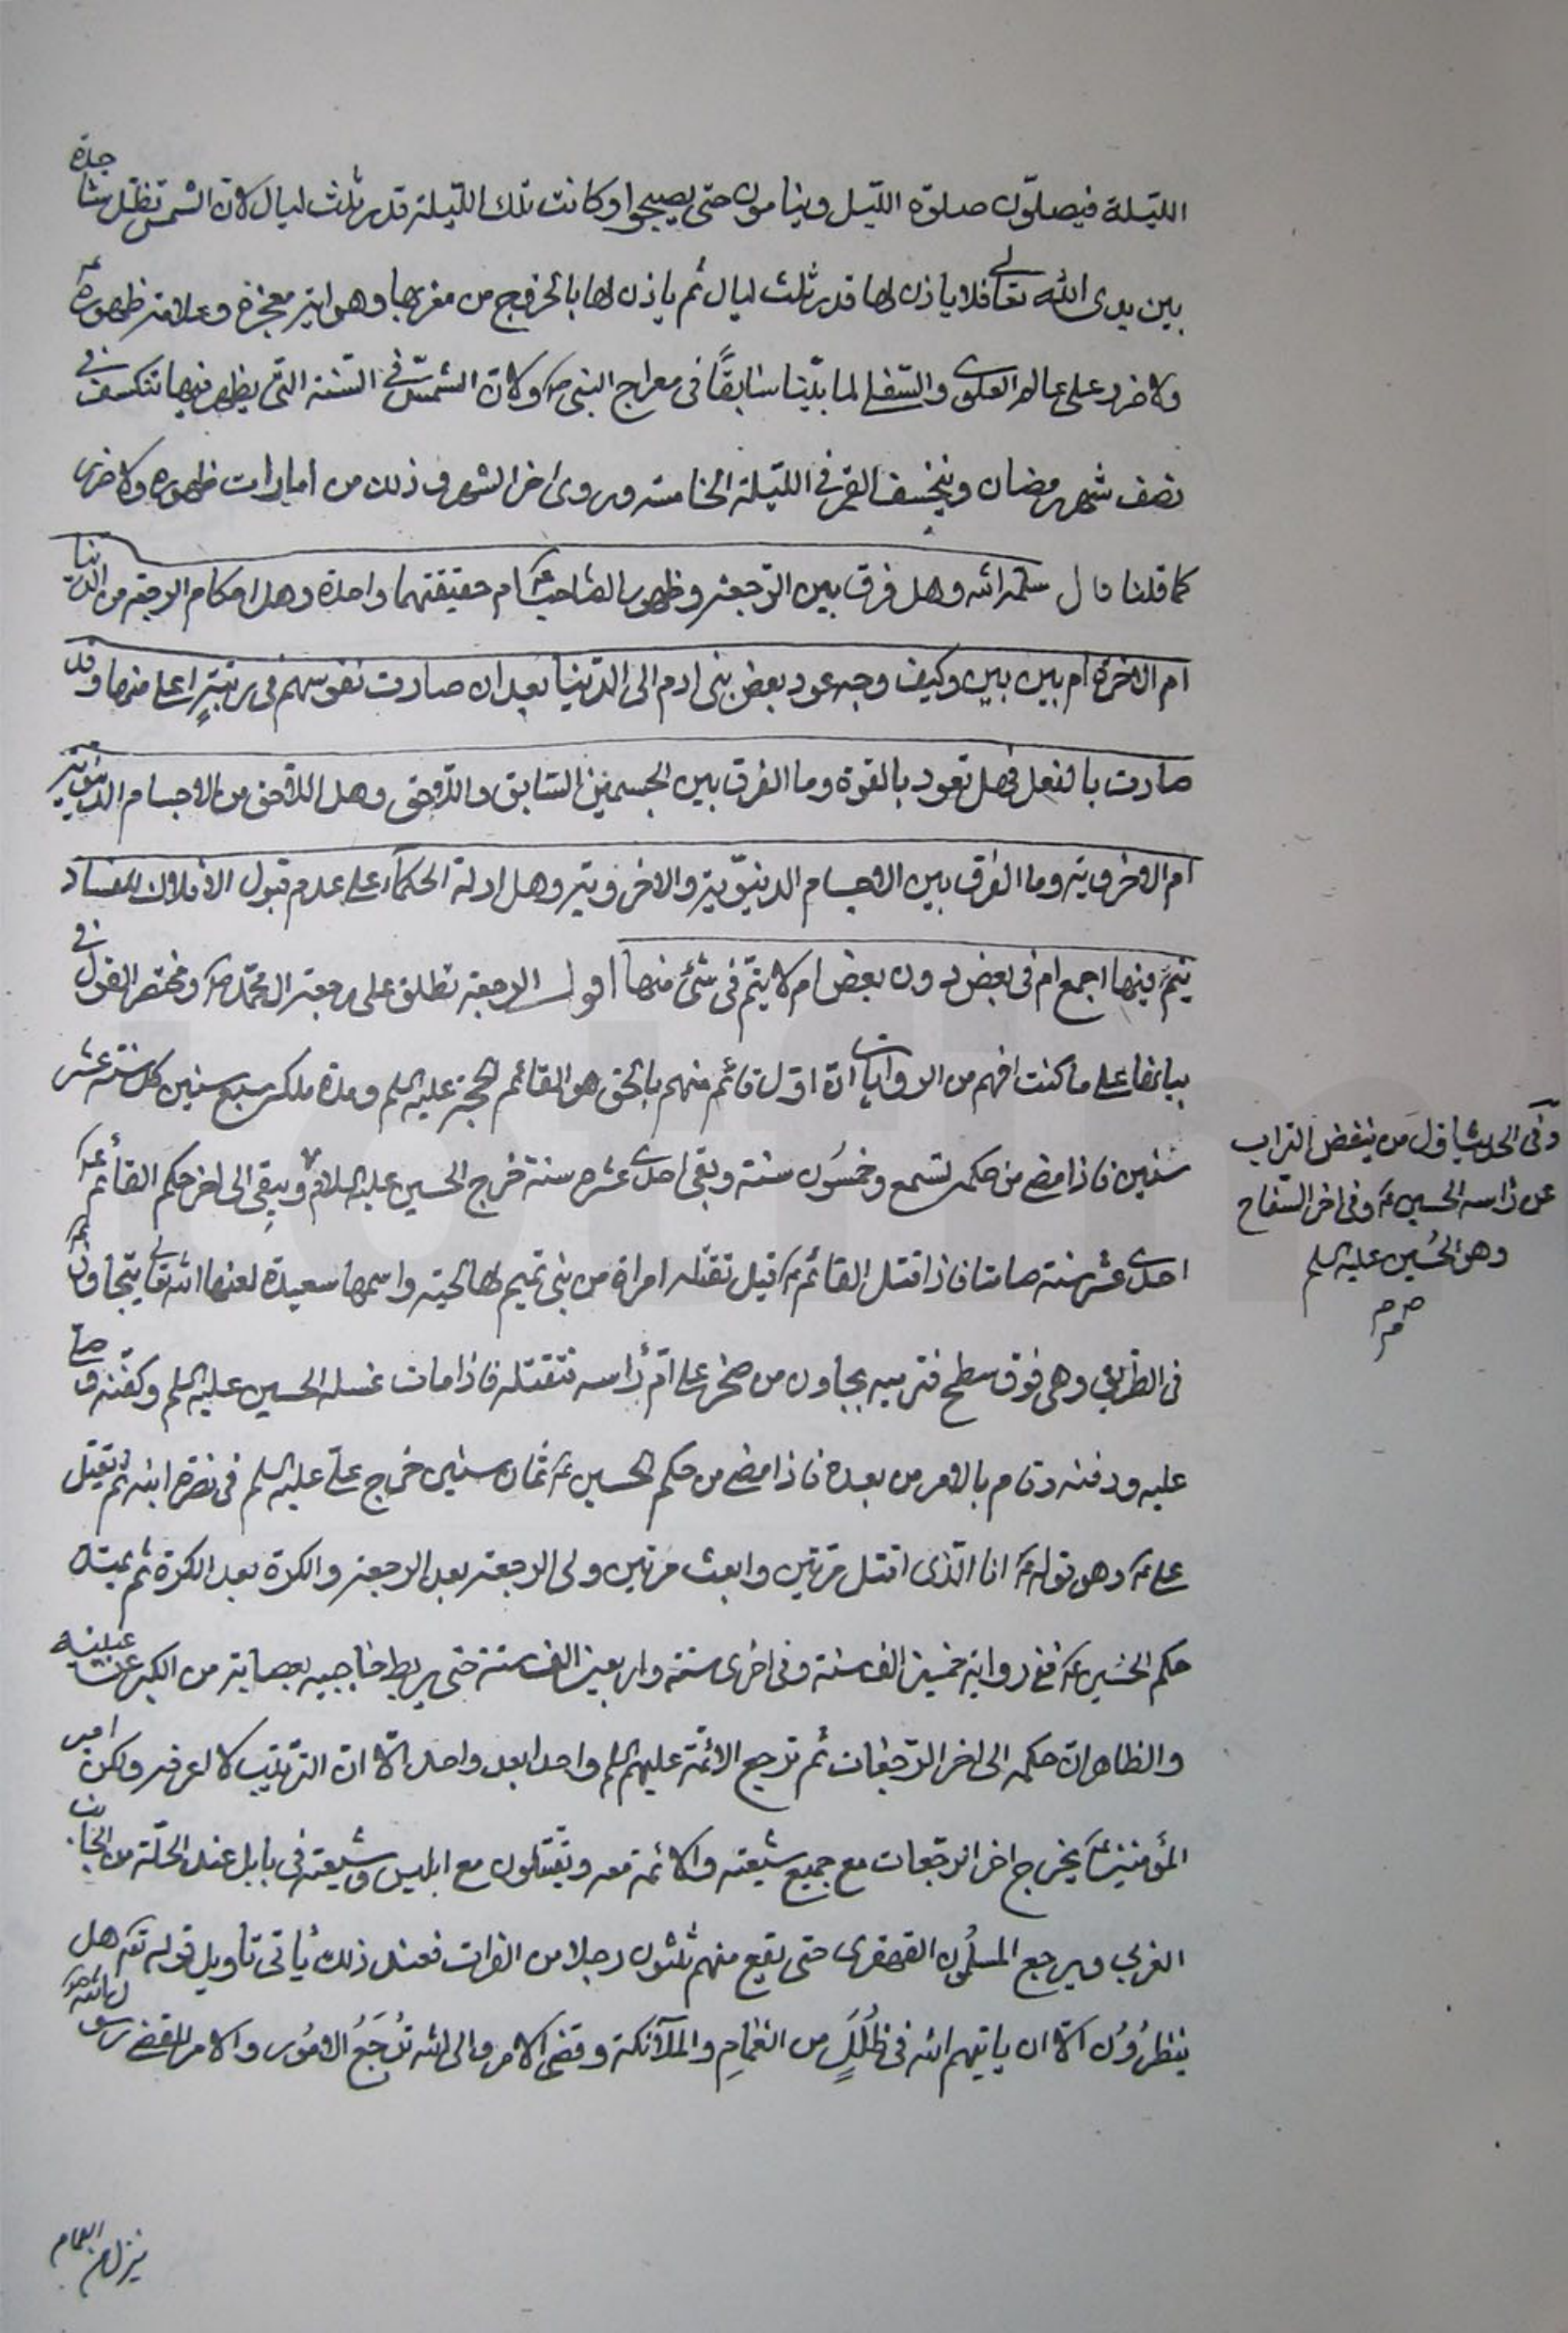 الليلة فيصلّون صلوة الليل وينامون حتى يصبحوا وكانت تلك الليلة قدر ثلث ليال لانّ الشمس تظل ساجدة
بين يدى الله تعالى فلا ياذن لها قدر ثلث ليال ثم ياذن لها بالخروج من مغربها وهو اية معجزة وعلامة ظهوره ع
ولا ضرر على عالم العلوى والسّفلى لما بيّنا سابقاً فى معراج النبى ص ولانّ الشمس فى السنة التى يظهر فيها تنكسف فى
نصف شهر رمضان وينخسف القمر فى الليلة الخامسة وروى اخر الشهر وذلك من امارات ظهوره ولا ضرر
كما قلنا قال سلمه الله وهل فرق بين الرّجعة وظهور الصّاحب ع ام حقيقتهما واحدة وهل احكام الرجعة من الدنيا
ام الاخرة ام بين بين وكيف وجه عود بعض بنى ادم الى الدّنيا بعد ان صارت نفوسهم فى رتبةٍ اعلى منها وقد
صارت بالفعل فهل تعود بالقوة وما الفرق بين الجسمين السّابق واللّاحق وهل اللّاحق من الاجسام الدنيويّة
ام الاخروية وما الفرق بين الاجسام الدنيوّية والاخروية وهل ادلة الحكماء على عدم قبول الافلاك للفساد
يتمّ فيها اجمع ام فى بعض دون بعض ام لا يتمّ فى شئ منها اقول الرجعة تطلق على رجعة ال محمّد ص ومختصر القول فى
بيانها على ما كنت افهم من الروايات انّ اوّل قائم منهم بالحق هو القائم الحجة عليه السلم ومدة ملكه سبع سنين كل سنة عشر
سنين فاذا مضى من حكمه تسع وخمسُون سنة وبقى احدى عشره سنة خرج الحسين عليه السلام ويبقى الى اخر حكم القائم ع
احدى عشر سنة صامتا فاذا قتل القائم ع قيل تقتله امراة من بنى تميم لها لحية واسمها سعيدة لعنها الله تعالى يتجاوز ع
فى الطريق وهى فوق سطح فترميه بجاون من صخر على امّ رأسه فتقتله فاذا مات غسله الحسين عليه السلم وكفّنه وصلى
عليه ودفنه وقام بالامر من بعده فاذا مضى من حكم الحسين ع ثمان سنين خرج علىّ عليه السلم فى نصرة ابنه ثم يقتل
على ع وهو قوله ع انا الّذى اقتل مرّتين وابعث مرتين ولى الرجعة بعد الرجعة والكرة بعد الكرة ثم يمتد
حكم الحسين ع ففى رواية خمسين الف سنة وفى اخرى ستة واربعين الف سنة حتى يربط حاجبيه بعصابة من الكبر عن عينيه
والظاهر انّ حكمه الى اخر الرّجعات ثم ترجع الائمّة عليهم السلم واحدا بعد واحد الّا انّ الترتيب لا اعرفه ولكن امير
المؤمنين ع يخرج اخر الرّجعات مع جميع شيعته والائمة معه ويقتتلون مع ابليس وشيعته فى بابل عند الحلّة من الجانب
الغربى ويرجع المسلمُون القهقرى حتى يقع منهم ثلثون رجلا من الفرات فعند ذلك يأتى تاويل قوله تعالى هل
ينظرُوُن الّا ان ياتيهم الله فى ظُلَلٍ من الغَمامِ والملآئكة وقضى الامر والى الله تُرْجَعُ الامُور والامر المقضى رسول الله ص
وفى الحديث اوّل من ينفض التراب
عن رأسه الحسين ع وفى اخر السّفاح
وهو الحُسين عليه السلم
ينزل من الغمام